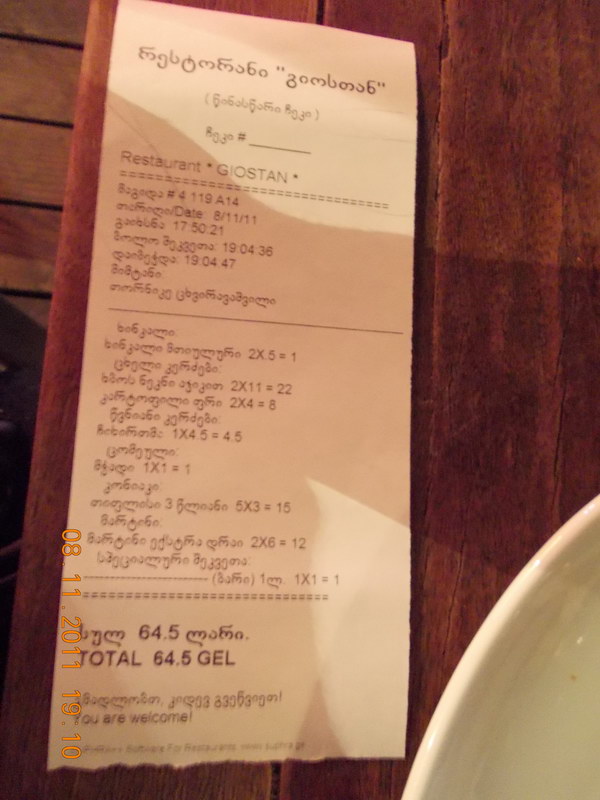 რესტორანი "გიოსთან"
( წინასწარი ჩეკი )
ჩეკი # ________
Restaurant * GIOSTAN *
==================================
მაგიდა # 4 119 A14
თარიღი/Date: 8/11/11
გაიხსნა 17:50:21
ბოლო შეკვეთა: 19:04:36
დაიბეჭდა: 19:04:47
მიმტანი:
თორნიკე ცხვირავაშვილი
ხინკალი:
ხინკალი მთიულური 2X.5 = 1
ცხელი კერძები:
ხბოს ნეკნი აჯიკით 2X11 = 22
კარტოფილი ფრი 2X4 = 8
წვნიანი კერძები:
ჩიხირთმა 1X4.5 = 4.5
ცომეული:
მჭადი 1X1 = 1
კონიაკი:
თიფლისი 3 წლიანი 5X3 = 15
მარტინი:
მარტინი ექსტრა დრაი 2X6 = 12
სპეციალური შეკვეთა:
--------------------------- (ბარი) 1ლ. 1X1 = 1
==================================
სულ 64.5 ლარი.
TOTAL 64.5 GEL
გმადლობთ, კიდევ გვეწვიეთ!
You are welcome!
Software For Restaurants
08.11.2011 19:10